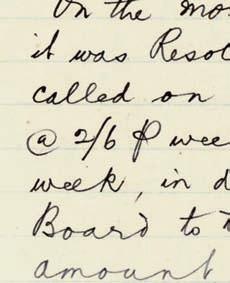 On the mo
it was Resol
called on
@ 2/6 ₱ wee
week, in d
Board to t
amount